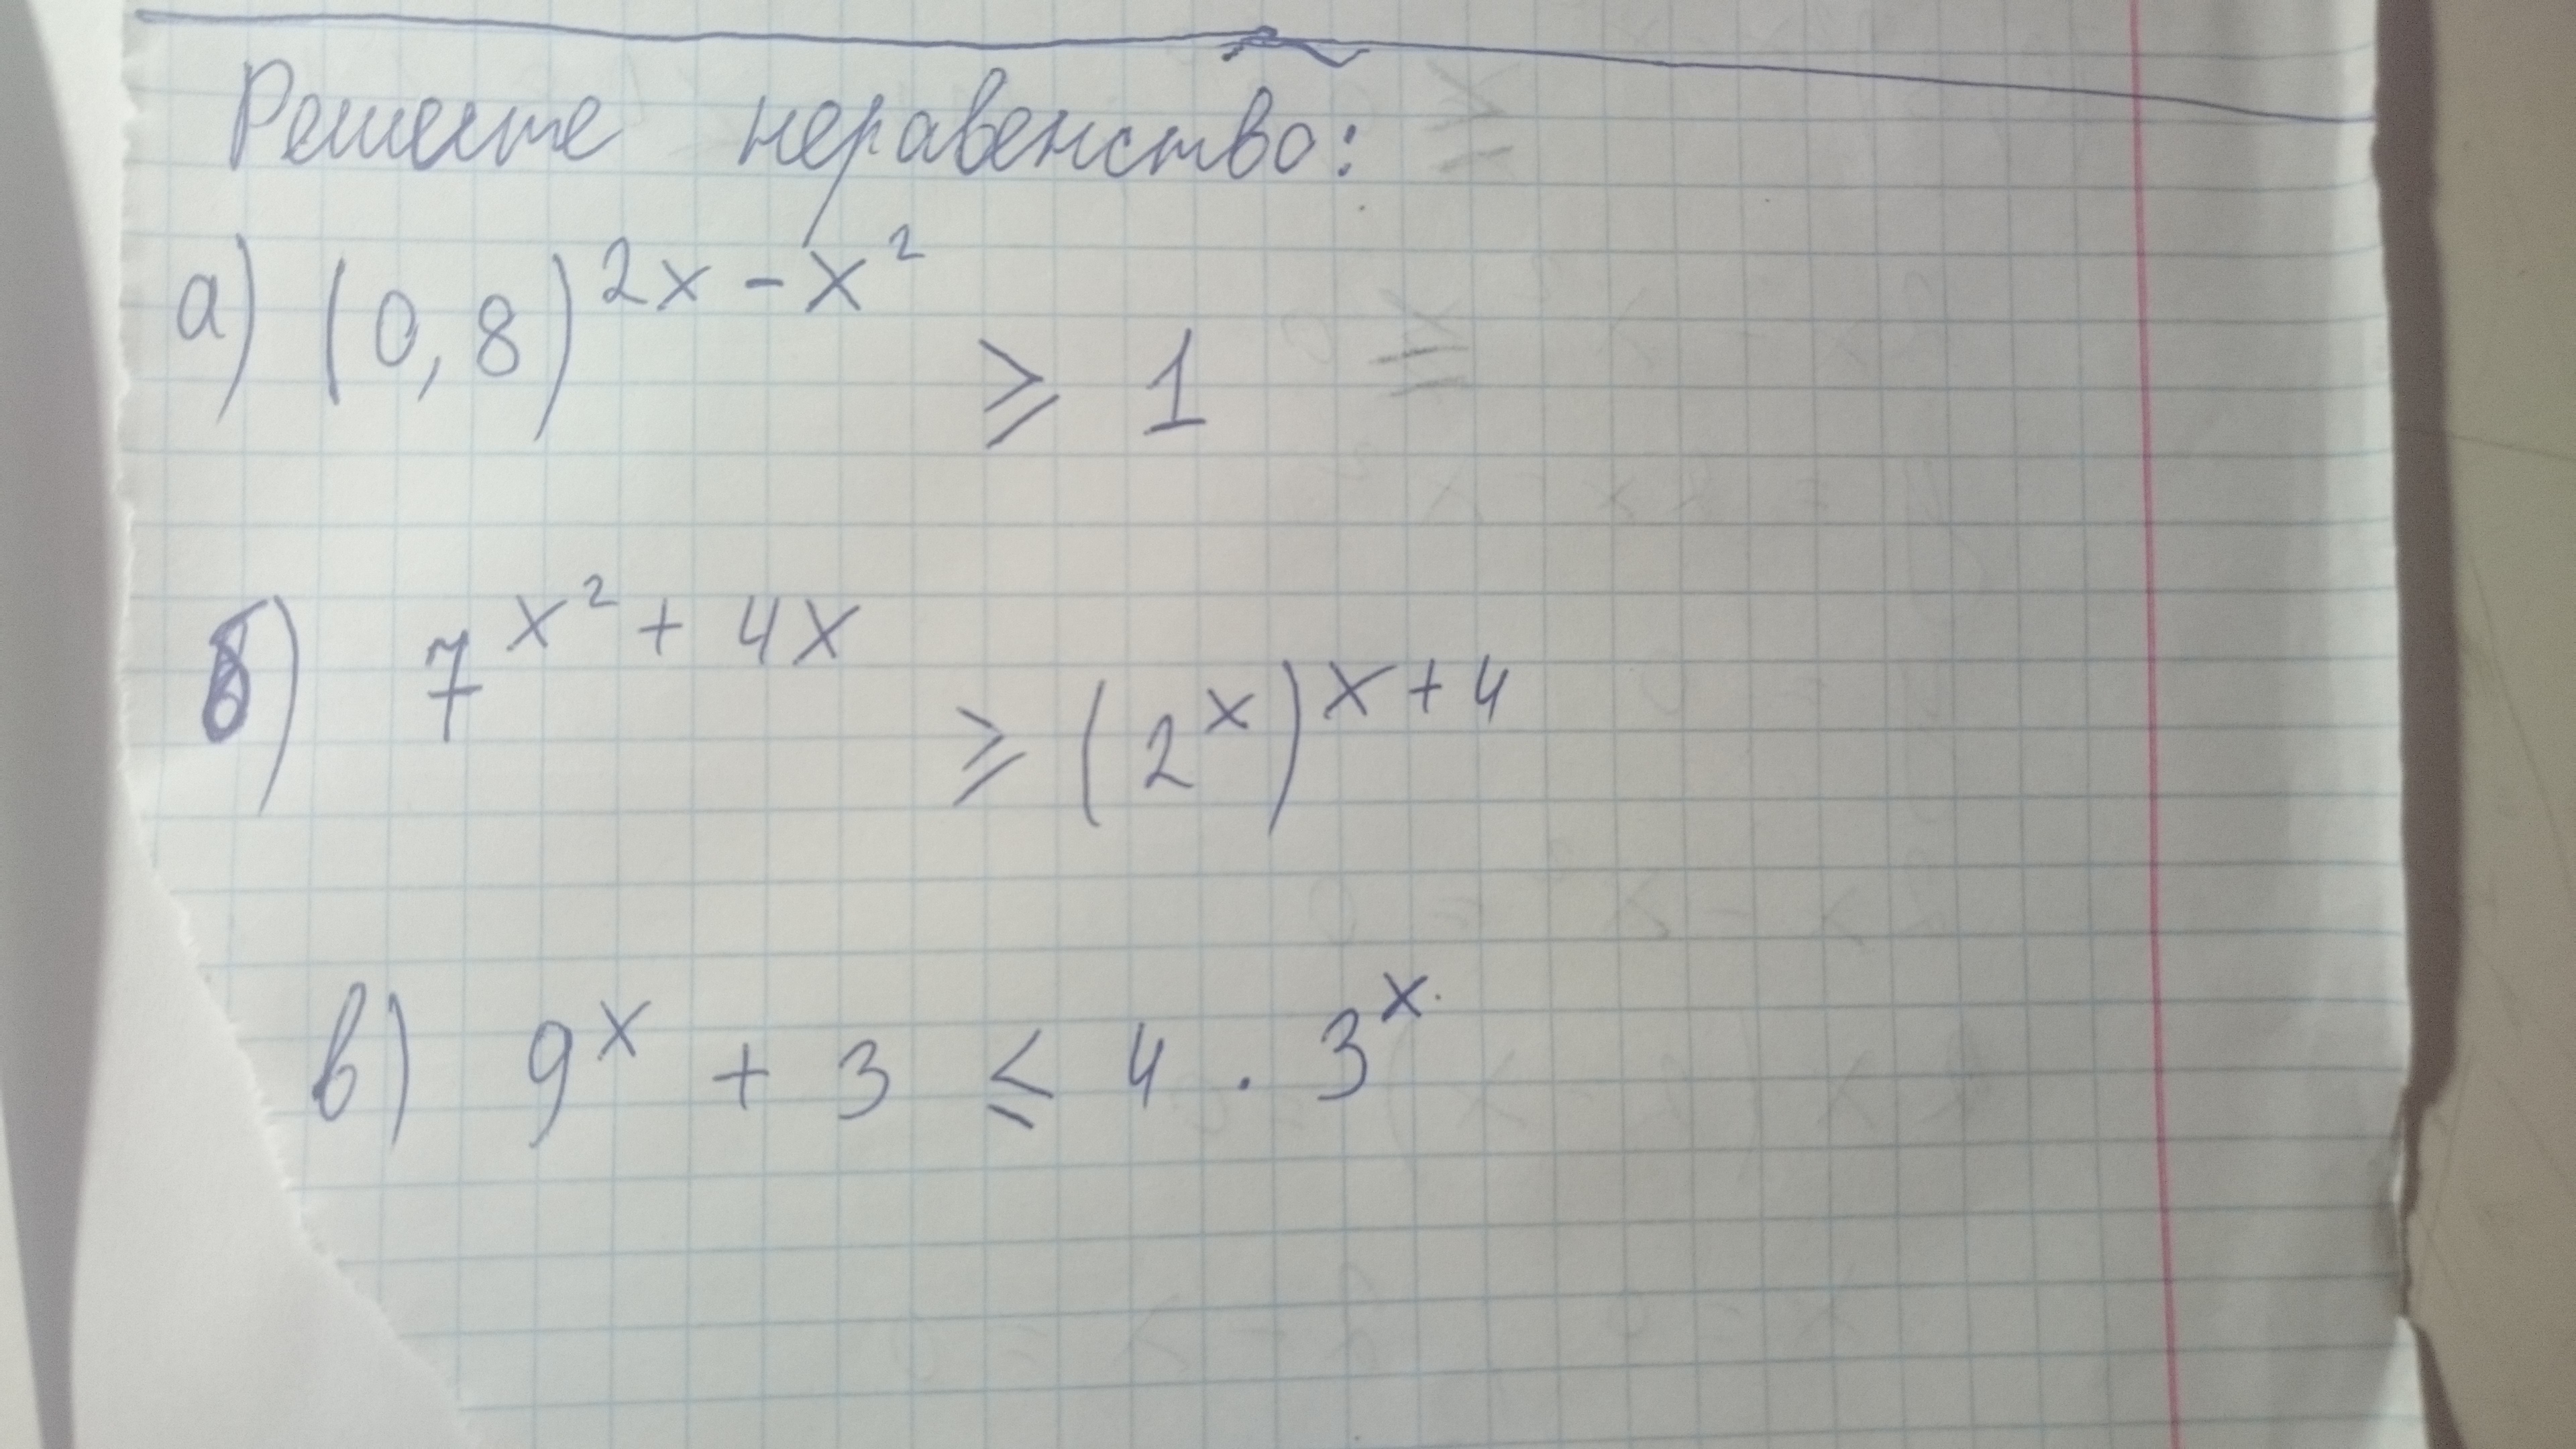 Решите неравенство:
а) (0,8)^{2x - x²} ⩾ 1
б) 7^{x² + 4x} ⩾ (2^x)^{x + 4}
в) 9^x + 3 ⩽ 4 · 3^x